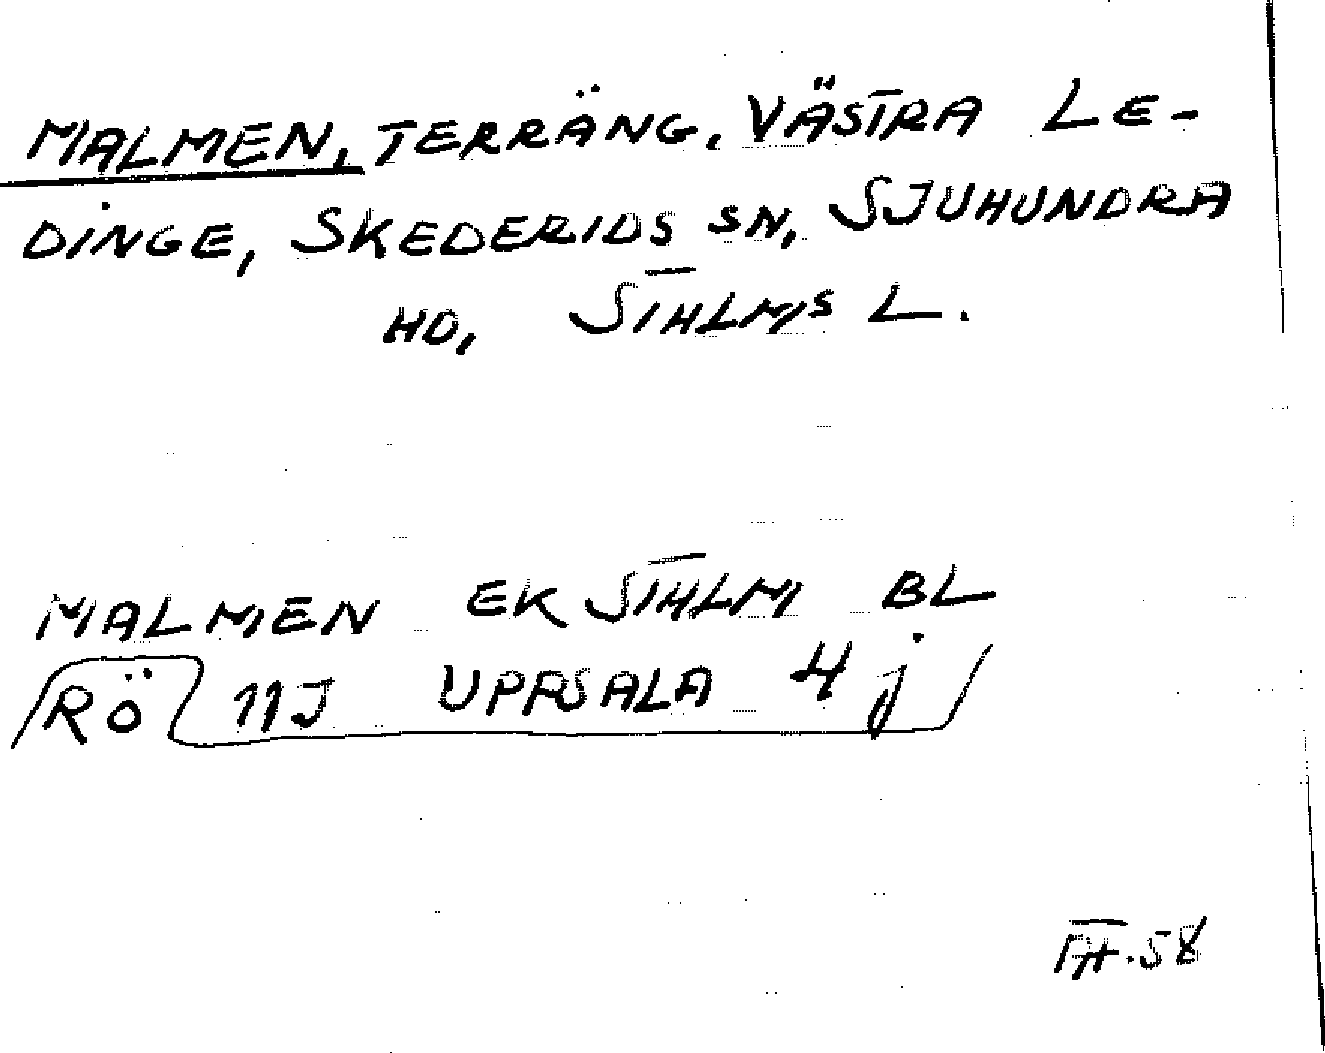 MALMEN, TERRÄNG, VÄSTRA LE-
DINGE, SKEDERIDS SN, SJUHUNDRA
HD, STHLMS L.
MALMEN EK STHLM BL
RÖ 11J UPPSALA 4 j